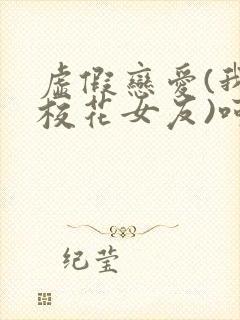 虛假戀愛(我
校花女友)
纪莹